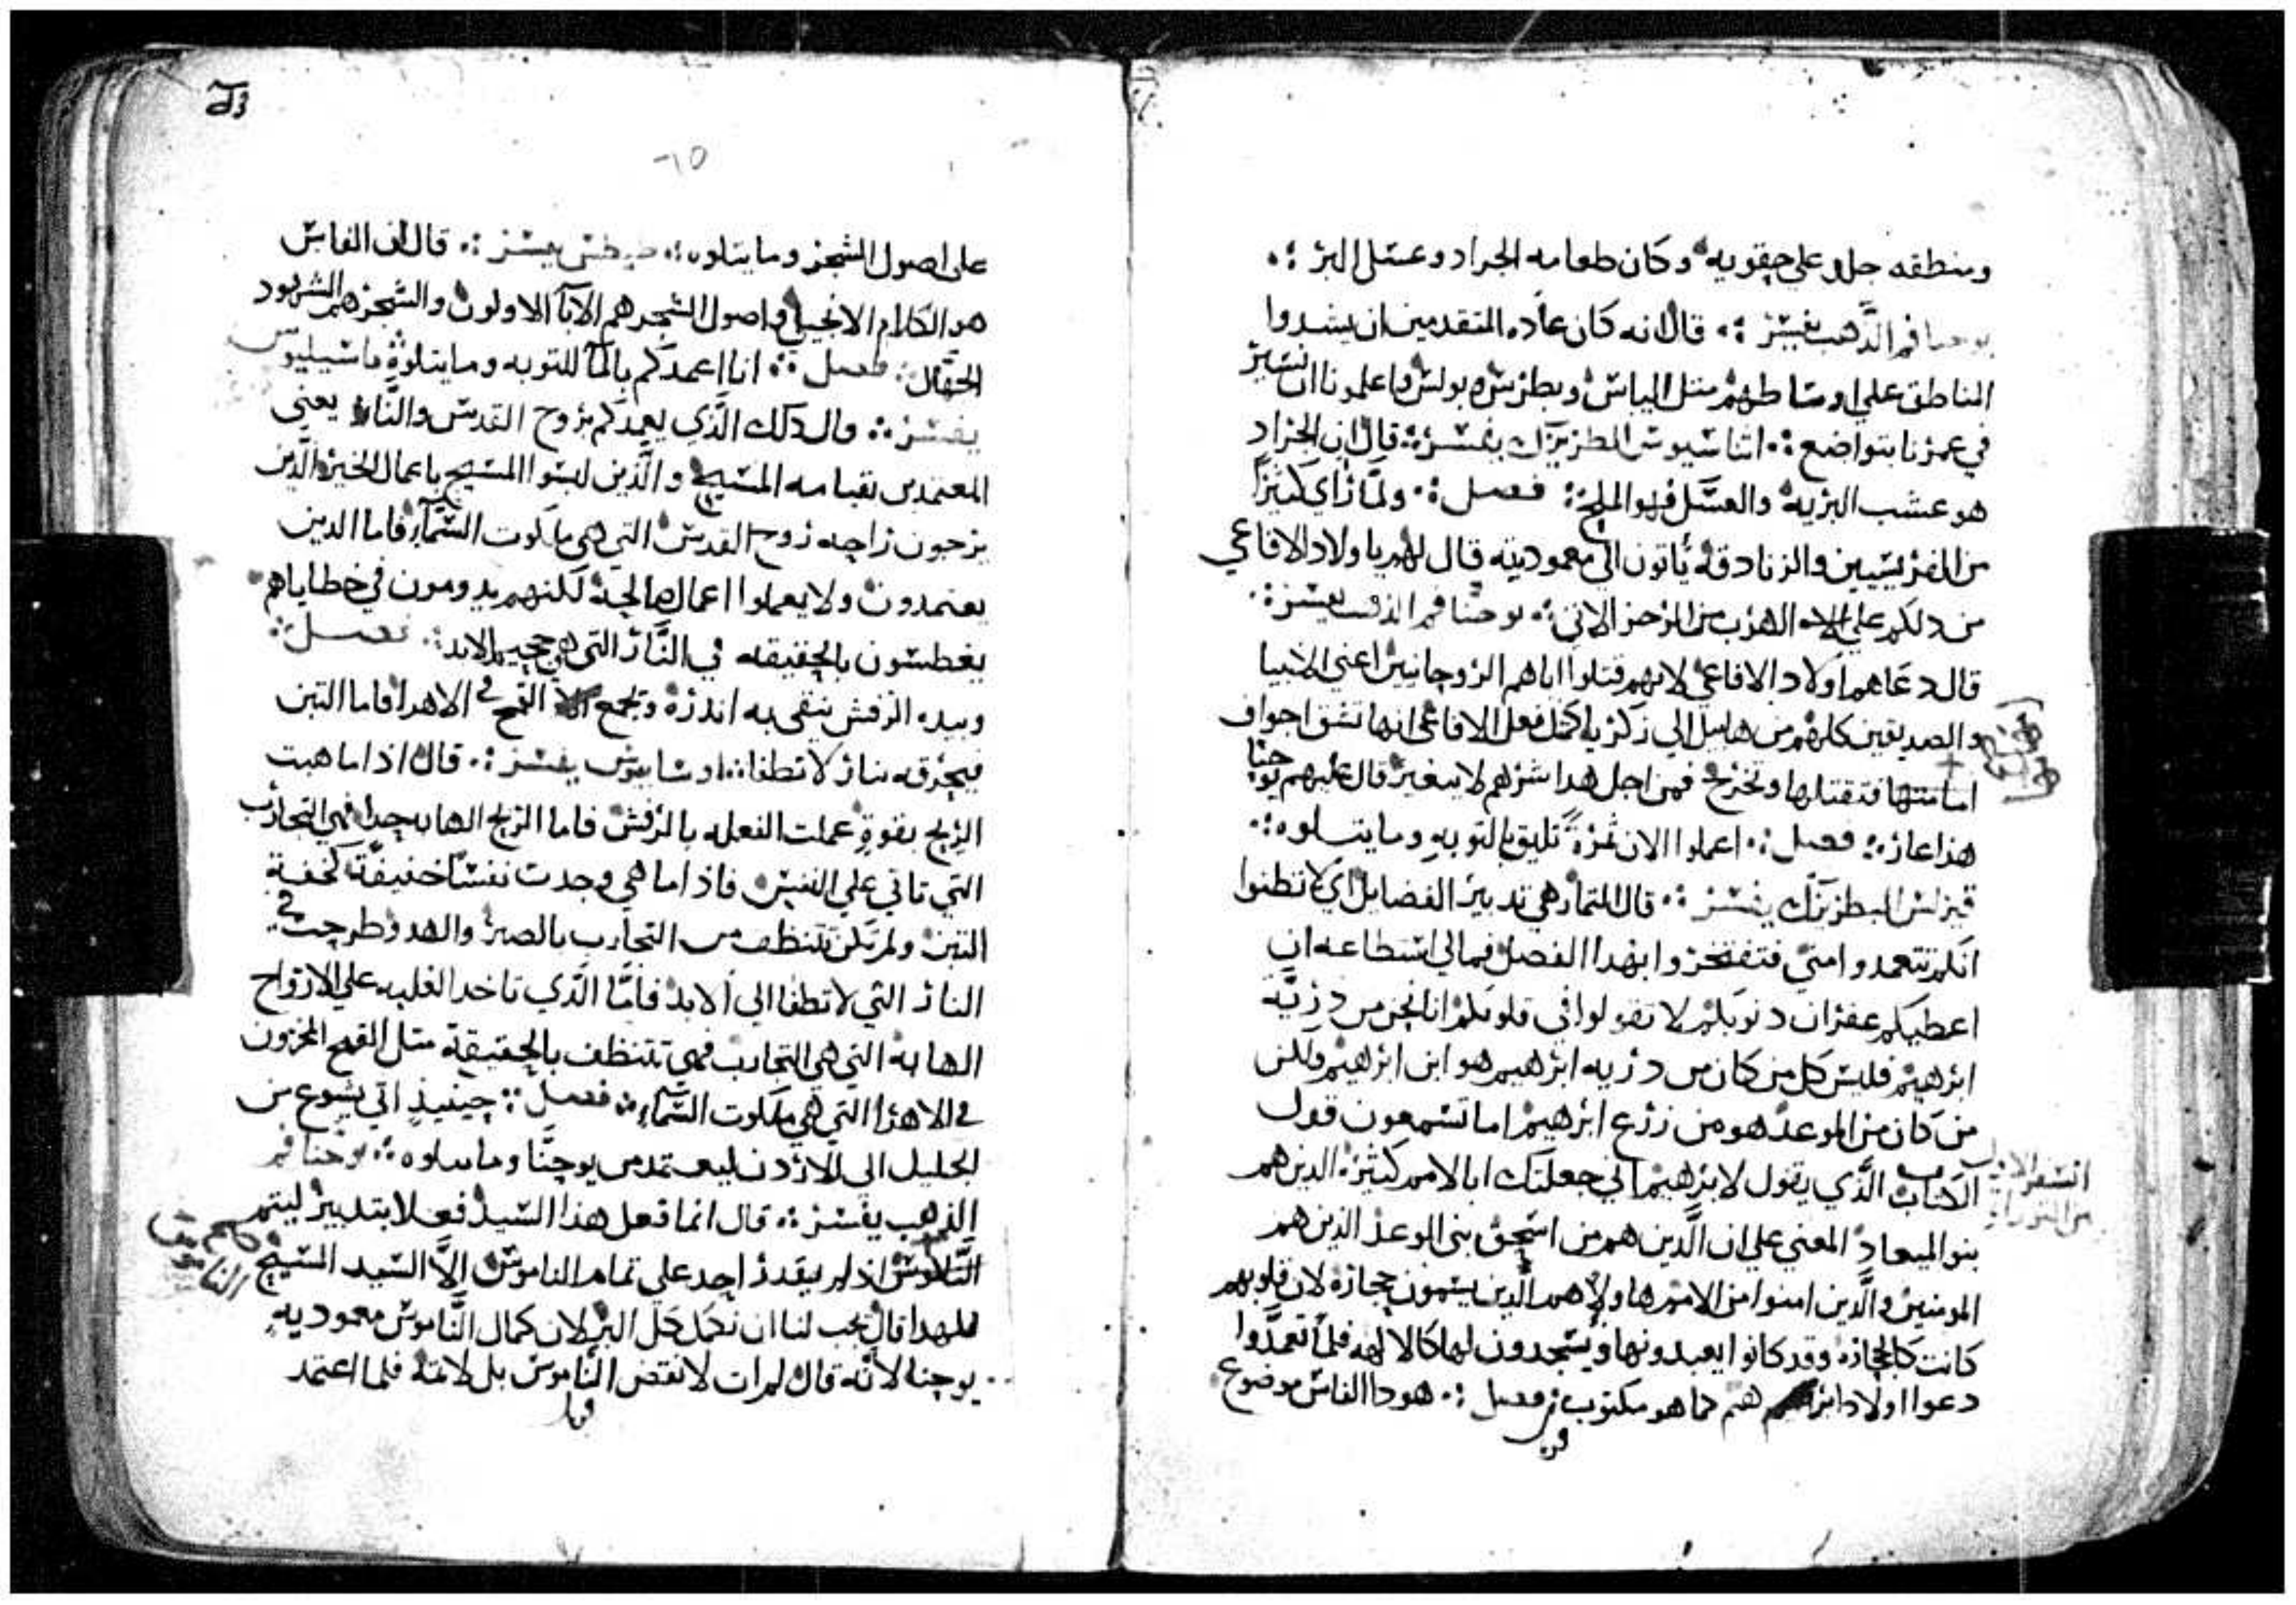 ومنطقه جلد علي حقويه وكان طعامه الجراد وعسل البر ؛•
يوحنا فم الذهب يفسر ؛• قال انه كان عاده المتقدمين ان يشدوا
المناطق علي اوساطهم متل الياس وبطرس وبولس واعلمونا ان نسير
في عمرنا بتواضع ؛• اتناسيوس البطريرك يفسر ؛ قال ان الجراد
هو عشب البريه والعسل فهو الملح ؛ فصل ؛• ولما راي كتيرا
من الفريسيين والزنادقه ياتون الي معموديته قال لهم يا ولاد الافاعي
من دلكم علي الهرب من الرجز الاتي ؛• يوحنا فم الذهب يفسر ؛•
قال دعاهم اولاد الافاعي لانهم قتلوا اباهم الروحانيين اعني الانبيا
والصديقين كلهم من هابيل الي زكريا كمتل فعل الافاعي انها تشق اجواف
امهاتها فتقتلها وتخرج فمن اجل هدا شرهم لا يتغير قال عليهم يوحنا
هذا عار ؛ فصل ؛• اعملوا الان تمرة تليق بالتوبه وما يتلوه ؛•
قيرلس البطريرك يفسر ؛• قال التمار هي تدبير الفضايل اي لا تظنوا
انكم تتعمدوا مني فتفتخروا بهدا الفصل فمالي استطاعه ان
اعطيكم غفران دنوبكم لا تقولوا في قلوبكم انا نحن من دريّة
ابرهيم فليس كل من كان من دريه ابرهيم هو ابن ابرهيم ولكن
من كان من الموعد هو من زرع ابرهيم اما تسمعون قول
الكتاب الذي يقول لابرهيم اني جعلتك ابا لامم كثيره الدين هم
السفر الاول
من التوراه
بنو الميعاد المعني علي ان الدين هم من اسحق بني الوعد الذين هم
المومنين والدين امنوا من الامم هاولاهم الدين يسمون حجاره لان قلوبهم
كانت كالحجاره وقد كانوا يعبدونها ويسجدون لها كالالهه فلما تعمدوا
دعوا اولاد ابرهيم كما هو مكتوب ؛ فصل ؛• هودا الفاس موضوع
على اصول الشجر وما يتلوه ؛ يفسر ؛• قال ان الفاس
هو الكلام الانجيلي واصول الشجر هم الابآ الاولون والشجر هم اليهود
الجهّال ؛ فصل ؛• انا اعمدكم بالمآ للتوبه وما يتلوه باسيليوس
يفسر ؛• قال دلك الذي يعمدكم بروح القدس والنار يعني
المعتمدين بقيامه المسيح والذين لبسوا المسيح باعمال الخير الذين
يرجون راحه روح القدس التي هي ملكوت السمآ فاما الدين
يعتمدون ولا يعملوا اعمال صالحة لكنهم يدومون في خطاياهم
يغطسون بالحقيقه في النار التي هي جحيم الابد ؛• فصل ؛
وبيده الرفش ينقي به اندره ويجمع القمح في الاهرا فاما التبن
فيحرقه بنار لا تطفا ؛• اوسابيوس يفسر ؛• قال اذا ما هبت
الريح بقوة عملت الفعله بالرفش فاما الريح الهابه جدا فهي التجارب
التي تاتي علي النفس فاذا ما هي وجدت نفسًا خفيفّة كخفة
التبن ولم تكن تتنظف من التجارب بالصبر والهدو طرحت في
النار التي لا تطفا الي الابد فامّا الّذي تاخد الغلبه علي الارواح
الهابه التي هي التجارب فهي تتنظف بالحقيقة متل القمح المخزون
في الاهرا التي هي ملكوت السمآء ؛ فصل ؛ حينيذٍ اتي يسوع من
الجليل الى الاردن ليعتمد من يوحنّا وما يتلوه ؛ يوحنا فم
الذهب يفسر ؛• قال انما فعل هذا السيد فعلا بتدبير ليتمم
النّاموس اذ لم يقدر احد على تمام الناموس الاّ السّيد المسيح
الناموس
فلهدا قال يجب لنا ان نكمل كل البر لان كمال النّاموس معموديه
يوحنا لانّه قال لم ات لانقض النّاموس بل لاتمه فلما اعتمد